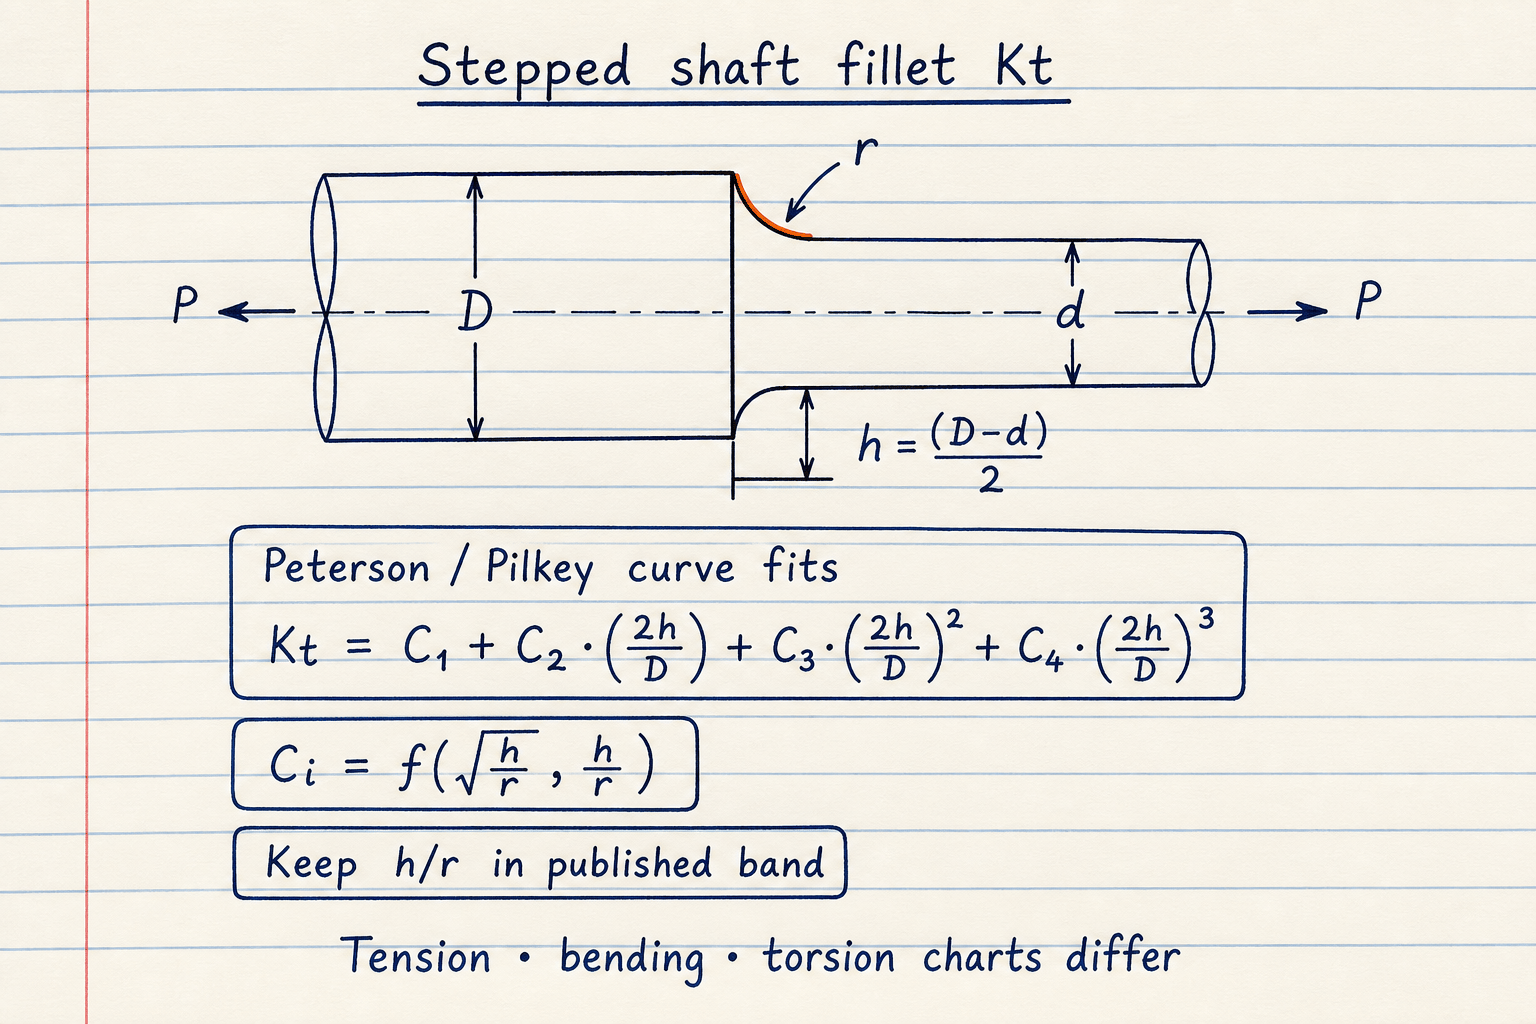 Stepped shaft fillet Kt
r
P
D
d
P
h = (D-d)/2
Peterson / Pilkey curve fits
Kt = C₁ + C₂·(2h/D) + C₃·(2h/D)² + C₄·(2h/D)³
Cᵢ = f(√(h/r), h/r)
Keep h/r in published band
Tension • bending • torsion charts differ